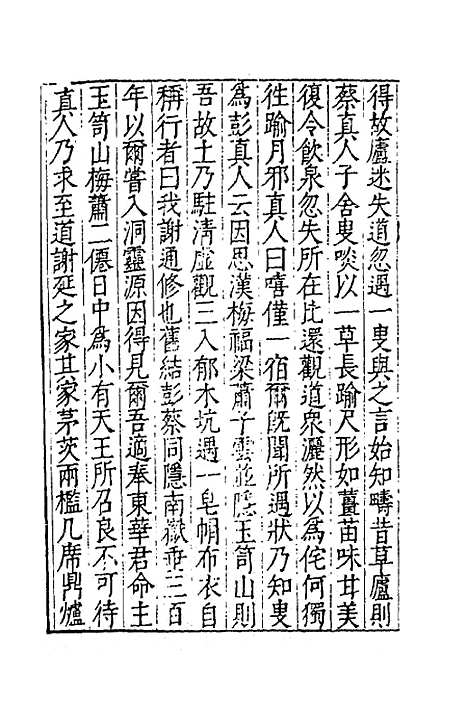 得故廬迷失道忽遇一叟與之言始知疇昔草廬則
蔡真人子舍叟啖以一草長踰尺形如薑苗味甘美
復令飲泉忽失所在比還觀道衆灑然以爲侘何獨
徃踰月邪真人曰嘻僅一宿爾旣聞所遇狀乃知叟
爲彭真人云因思漢梅福梁蕭子雲並隱玉笥山則
吾故土乃駐清虛觀三入郁木坑遇一皂帽布衣自
稱行者曰我謝通修也舊結彭蔡同隱南嶽垂三百
年以爾嘗入洞靈源因得見爾吾適奉東華君命主
玉笥山梅蕭二僊日中爲小有天王所召良不可待
真人乃求至道謝延之家其家茅茨兩檻几席鼎爐